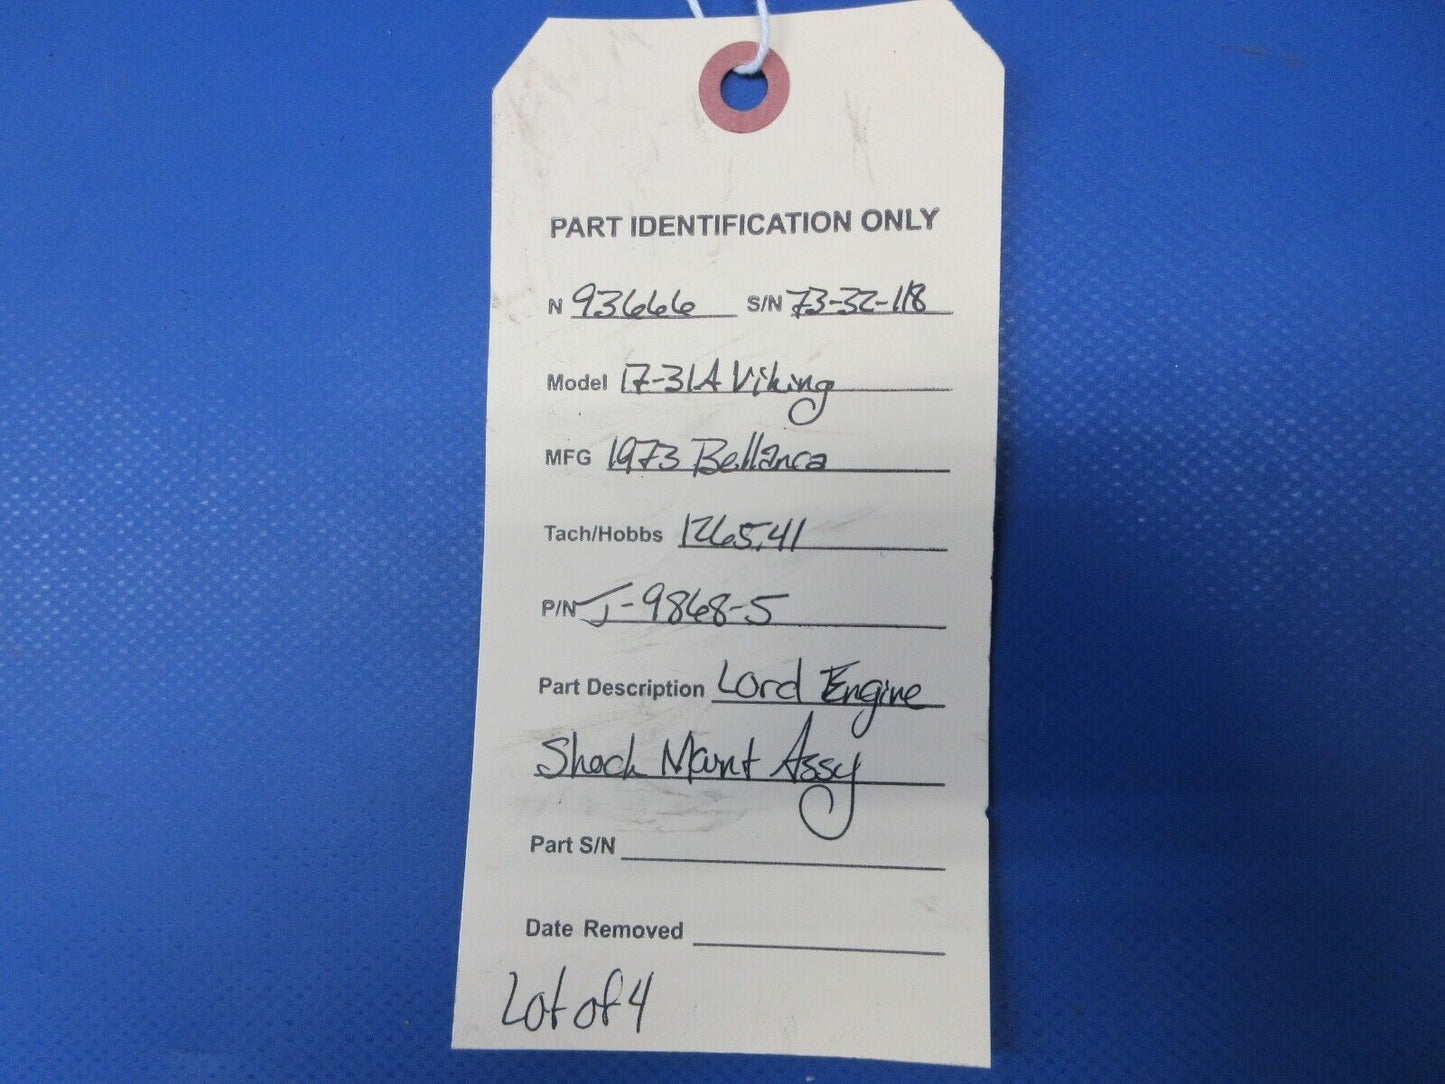 PART IDENTIFICATION ONLY
N 93666 S/N 73-32-118
Model 17-31A Viking
MFG 1973 Bellanca
Tach/Hobbs 1265.41
P/N J-9868-5
Part Description Lord Engine
Shock Mount Assy
Part S/N
Date Removed
Lot of 4